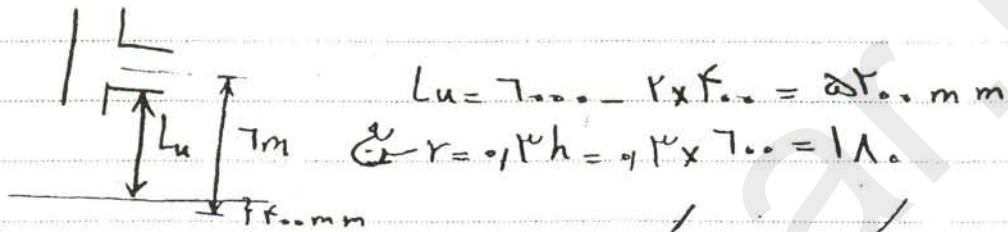 Lu = ۶۰۰۰ - ۲×۴۰۰ = ۵۲۰۰ mm
Lu
۶m
r = ۰,۳h = ۰,۳×۶۰۰ = ۱۸۰
۴۰۰mm